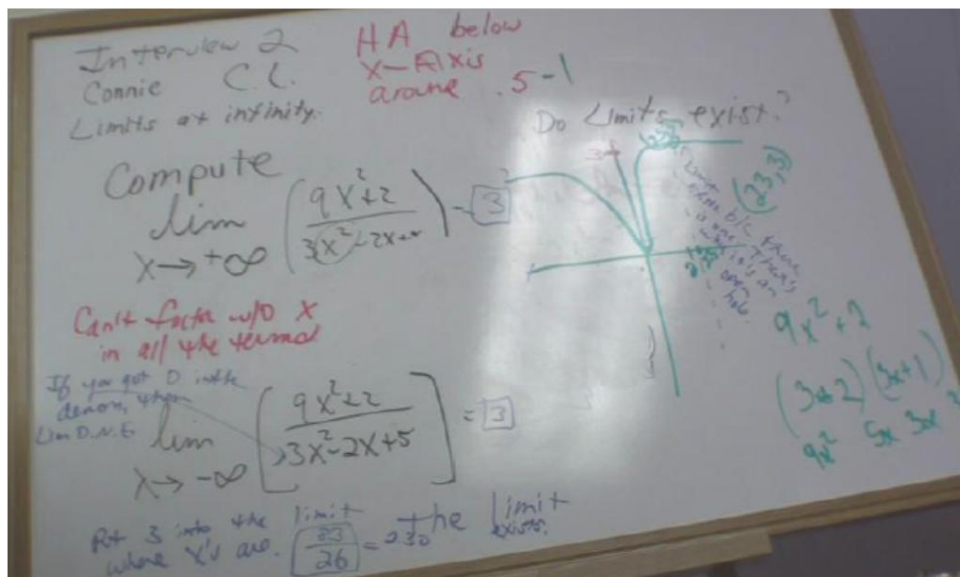 Interview 2
Connie C.L.
Limits at infinity.
HA below
X-Axis
around .5-1
Do Limits exist?
Compute
lim x→+∞ (9x²+2 / 3x²-2x+5) = 3
Can't factor w/o X
in all the terms
If you got 0 in the
denom, then
Lim D.N.E
lim x→-∞ [9x²+2 / 3x²-2x+5] = 3
Put 3 into the limit
where X's are. 83/26 = The limit
exists.
(23,3)
there
There's
an
open
hole.
9x²+2
(3x+2)(3x+1)
9x² 5x 3x